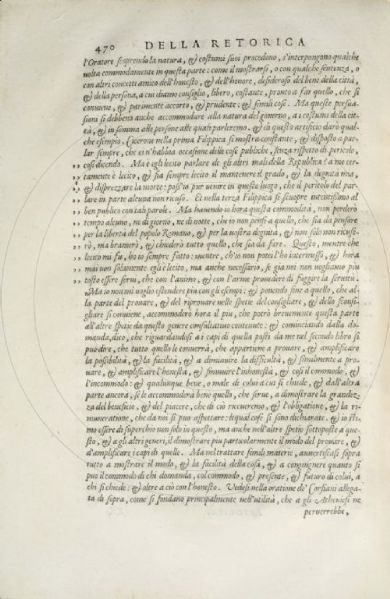 470 DELLA RETORICA
l'Oratore scoprendo la natura, & costumi suoi procedono, s'interpongono qualche
volta commodamente in questa parte: come il mostrarsi, o con qualche sentenza, o
con altri concetti amico dell'honesto, & dell'honore, desideroso del bene della città,
& della persona, a cui diamo consiglio, libero, costante, pronto a far quello, che si
conviene, & parimente accorto, & prudente: & simili cose. Ma queste persua-
sioni si debbono anche accommodare alla natura del governo, a i costumi della cit-
tà, & in somma alle persone alle quali parleremo. & di questo artificio darò qual-
che esempio. Cicerone nella prima Filippica si mostra constante, & disposto a par-
lar sempre, che ei n'habbia occasione delle cose publiche, senza rispetto di pericolo,
così dicendo. Ma è egli lecito parlare de gli altri mali della Republica? a me cer-
tamente è lecito, & sia sempre lecito il mantenere il grado, & la dignità mia,
& disprezzare la morte: possa io pur venire in questo luogo, che il pericolo del par-
lare in parte alcuna non ricuso. Et nella terza Filippica si scuopre intentissimo al
ben publico con tai parole. Ma havendo io hora questa commodità, non perderò
tempo alcuno, ne di giorno, ne di notte, che io non pensi a quello, che sia da pensare
per la libertà del popolo Romano, & per la vostra dignità, & non solo non ricuse-
rò, ma bramerò, & chiederò tutto quello, che sia da fare. Questo, mentre che
lecito mi fu, ho io sempre fatto: mentre, ch'io non potei l'ho intermesso, & hora
mai non solamente egli è lecito, ma anche necessario, se già noi non vogliamo più
tosto essere servi, che con l'animo, & con l'arme procedere di fuggire la servitù.
Ma io non mi voglio estendere più con gli esempi: & ponendo fine a questo, che al-
la parte del provare, & del riprovare nelle spetie del consigliare, & dello sconsi-
gliare si conviene, accommoderò hora il più, che potrò brevemente questa parte
all'altre spetie da questo genere consultativo contenute: & cominciando dalla do-
manda, dico, che riguardandosi a i capi di quella posti da me nel secondo libro si
può dire, che tutto quello le converrà, che appartiene a provare, & amplificare
la possibilità, & la facilità, & a diminuire la difficultà, & similmente a pro-
vare, & amplificare l'honestà, & sminuire l'inhonestà, & così il commodo, &
l'incommodo: & qualunque bene, o male di colui a cui si chiede, & dall'altra
parte ancora, se le accommoderà bene quello, che serve, a dimostrare la grandez-
za del beneficio, & del piacere, che di ciò riceveremo, & l'obligatione, & la ri-
muneratione, che da noi si può aspettare: tequai cose si sono dichiarate. & io sti-
mo essere di soperchio non solo in questo, ma anche nell'altre spetie sottoposte a que-
sto, & a gli altri generi, il dimostrare più particolarmente il modo del provare, &
d'amplificare i capi di quelle. Ma nel trattare simili materie, avvertiscasi sopra
tutto a mostrare il modo, & la facilità della cosa, & a congiugnere quanto si
può il commodo di chi domanda, col commodo, & presente, & futuro di colui, a
chi si chiede: & oltre a ciò con l'honesto. Vedesi nella oratione de' Corfiani allega-
ta di sopra, come si fondano principalmente nell'utilità, che a gli Atheniesi ne
perverrebbe,